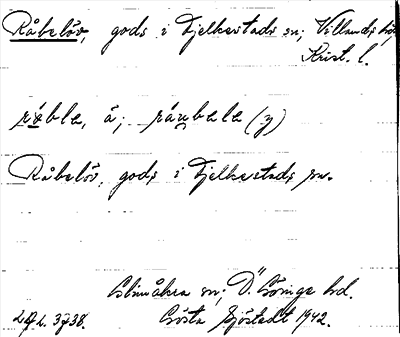 Råbelöv, gods i Fjelkestads sn; Villands hd,
Krist. l.
råbla, å; ráubela (y)
Råbelöv, gods i Fjelkestads sn.
Glimåkra sn; Ö. Göinge hd.
Gösta Sjöstedt 1942.